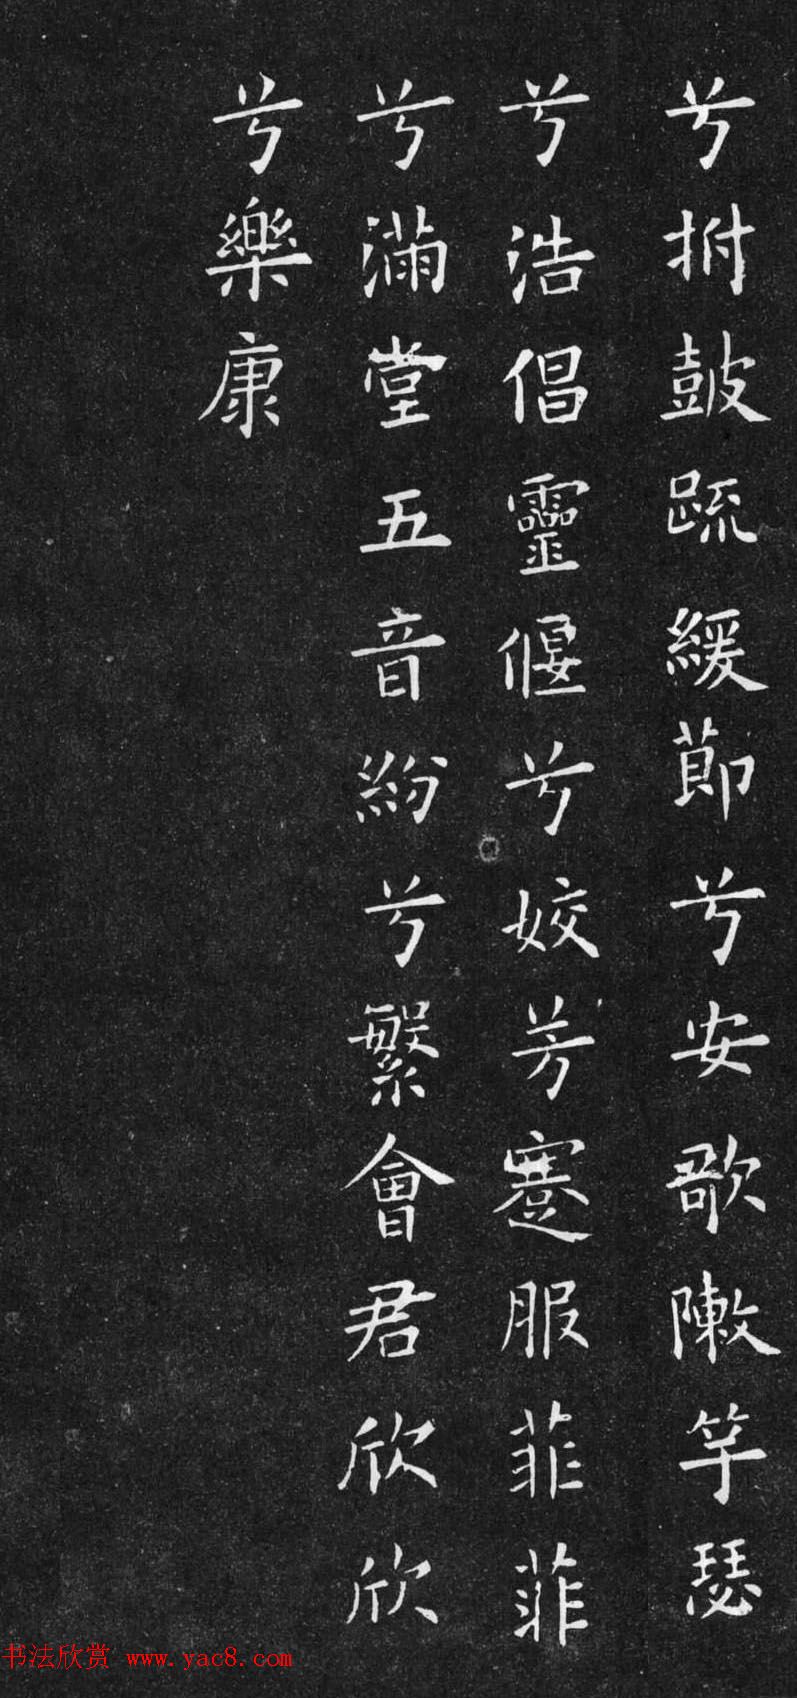 兮拊鼓踈緩節兮安歌陳竽瑟
兮浩倡靈偃兮姣芳蹇服菲菲
兮滿堂五音紛兮繁會君欣欣
兮樂康
书法欣赏 www.yac8.com